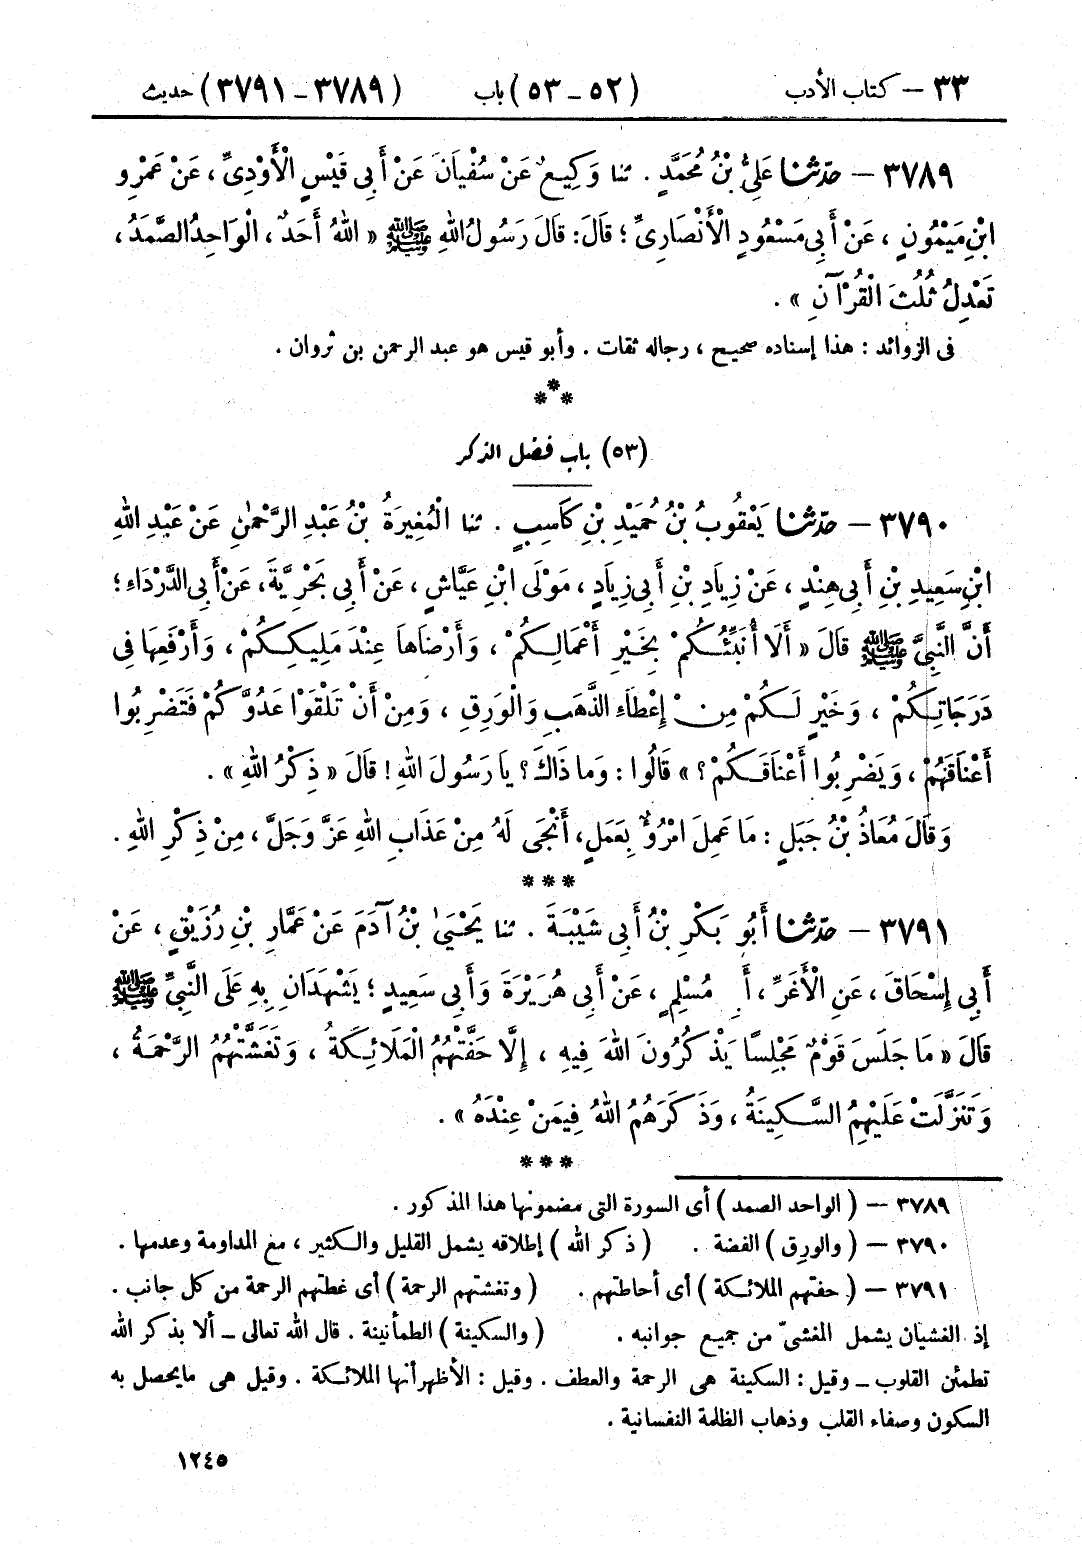 ٣٣ – كتاب الأدب (٥٢ – ٥٣) باب (٣٧٨٩ – ٣٧٩١) حديث
٣٧٨٩ – حَدَّثَنَا عَلِيُّ بْنُ مُحَمَّدٍ . ثنا وَكِيعٌ عَنْ سُفْيَانَ عَنْ أَبِى قَيْسٍ الْأَوْدِىِّ ، عَنْ عَمْرِو
ابْنِ مَيْمُونٍ ، عَنْ أَبِى مَسْعُودٍ الْأَنْصَارِىِّ ؛ قَالَ : قَالَ رَسُولُ اللهِ ﷺ « اللهُ أَحَدٌ ، الْوَاحِدُ الصَّمَدُ ،
تَعْدِلُ ثُلُثَ الْقُرْآنِ » .
فى الزوائد : هذا إسناده صحيح ، رجاله ثقات . وأبو قيس هو عبد الرحمن بن ثروان .
***
(٥٣) باب فضل الذكر
٣٧٩٠ – حَدَّثَنَا يَعْقُوبُ بْنُ حُمَيْدِ بْنِ كَاسِبٍ . ثنا الْمُغِيرَةُ بْنُ عَبْدِ الرَّحْمٰنِ عَنْ عَبْدِ اللهِ
ابْنِ سَعِيدِ بْنِ أَبِى هِنْدٍ ، عَنْ زِيَادِ بْنِ أَبِى زِيَادٍ ، مَوْلَى ابْنِ عَيَّاشٍ ، عَنْ أَبِى بَحْرِيَّةَ ، عَنْ أَبِى الدَّرْدَاءِ ؛
أَنَّ النَّبِيَّ ﷺ قَالَ « أَلَا أُنَبِّئُكُمْ بِخَيْرِ أَعْمَالِكُمْ ، وَأَرْضَاهَا عِنْدَ مَلِيكِكُمْ ، وَأَرْفَعِهَا فِى
دَرَجَاتِكُمْ ، وَخَيْرٍ لَكُمْ مِنْ إِعْطَاءِ الذَّهَبِ وَالْوَرِقِ ، وَمِنْ أَنْ تَلْقَوْا عَدُوَّكُمْ فَتَضْرِبُوا
أَعْنَاقَهُمْ ، وَيَضْرِبُوا أَعْنَاقَكُمْ ؟ » قَالُوا : وَمَا ذَاكَ ؟ يَا رَسُولَ اللهِ ! قَالَ « ذِكْرُ اللهِ » .
وَقَالَ مُعَاذُ بْنُ جَبَلٍ : مَا عَمِلَ امْرُؤٌ بِعَمَلٍ ، أَنْجَى لَهُ مِنْ عَذَابِ اللهِ عَزَّ وَجَلَّ ، مِنْ ذِكْرِ اللهِ .
***
٣٧٩١ – حَدَّثَنَا أَبُو بَكْرِ بْنُ أَبِى شَيْبَةَ . ثنا يَحْيَىٰ بْنُ آدَمَ عَنْ عَمَّارِ بْنِ رُزَيْقٍ ، عَنْ
أَبِى إِسْحَاقَ ، عَنِ الْأَغَرِّ ، أَبِى مُسْلِمٍ ، عَنْ أَبِى هُرَيْرَةَ وَأَبِى سَعِيدٍ ؛ يَشْهَدَانِ بِهِ عَلَى النَّبِيِّ ﷺ
قَالَ « مَا جَلَسَ قَوْمٌ مَجْلِسًا يَذْكُرُونَ اللهَ فِيهِ ، إِلَّا حَفَّتْهُمُ الْمَلَائِكَةُ ، وَتَغَشَّتْهُمُ الرَّحْمَةُ ،
وَتَنَزَّلَتْ عَلَيْهِمُ السَّكِينَةُ ، وَذَكَرَهُمُ اللهُ فِيمَنْ عِنْدَهُ » .
***
٣٧٨٩ – ( الواحد الصمد ) أى السورة التى مضمونها هذا المذكور .
٣٧٩٠ – ( والورِق ) الفضة . ( ذكر الله ) إطلاقه يشمل القليل والكثير ، مع المداومة وعدمها .
٣٧٩١ – ( حفتهم الملائكة ) أى أحاطتهم . ( وتغشتهم الرحمة ) أى غطتهم الرحمة من كل جانب .
إذ الغشيان يشمل المغشىّ من جميع جوانبه . ( والسكينة ) الطمأنينة . قال الله تعالى – ألا بذكر الله
تطمئن القلوب – وقيل : السكينة هى الرحمة والعطف . وقيل : الأظهر أنها الملائكة . وقيل هى مايحصل به
السكون وصفاء القلب وذهاب الظلمة النفسانية .
١٢٤٥